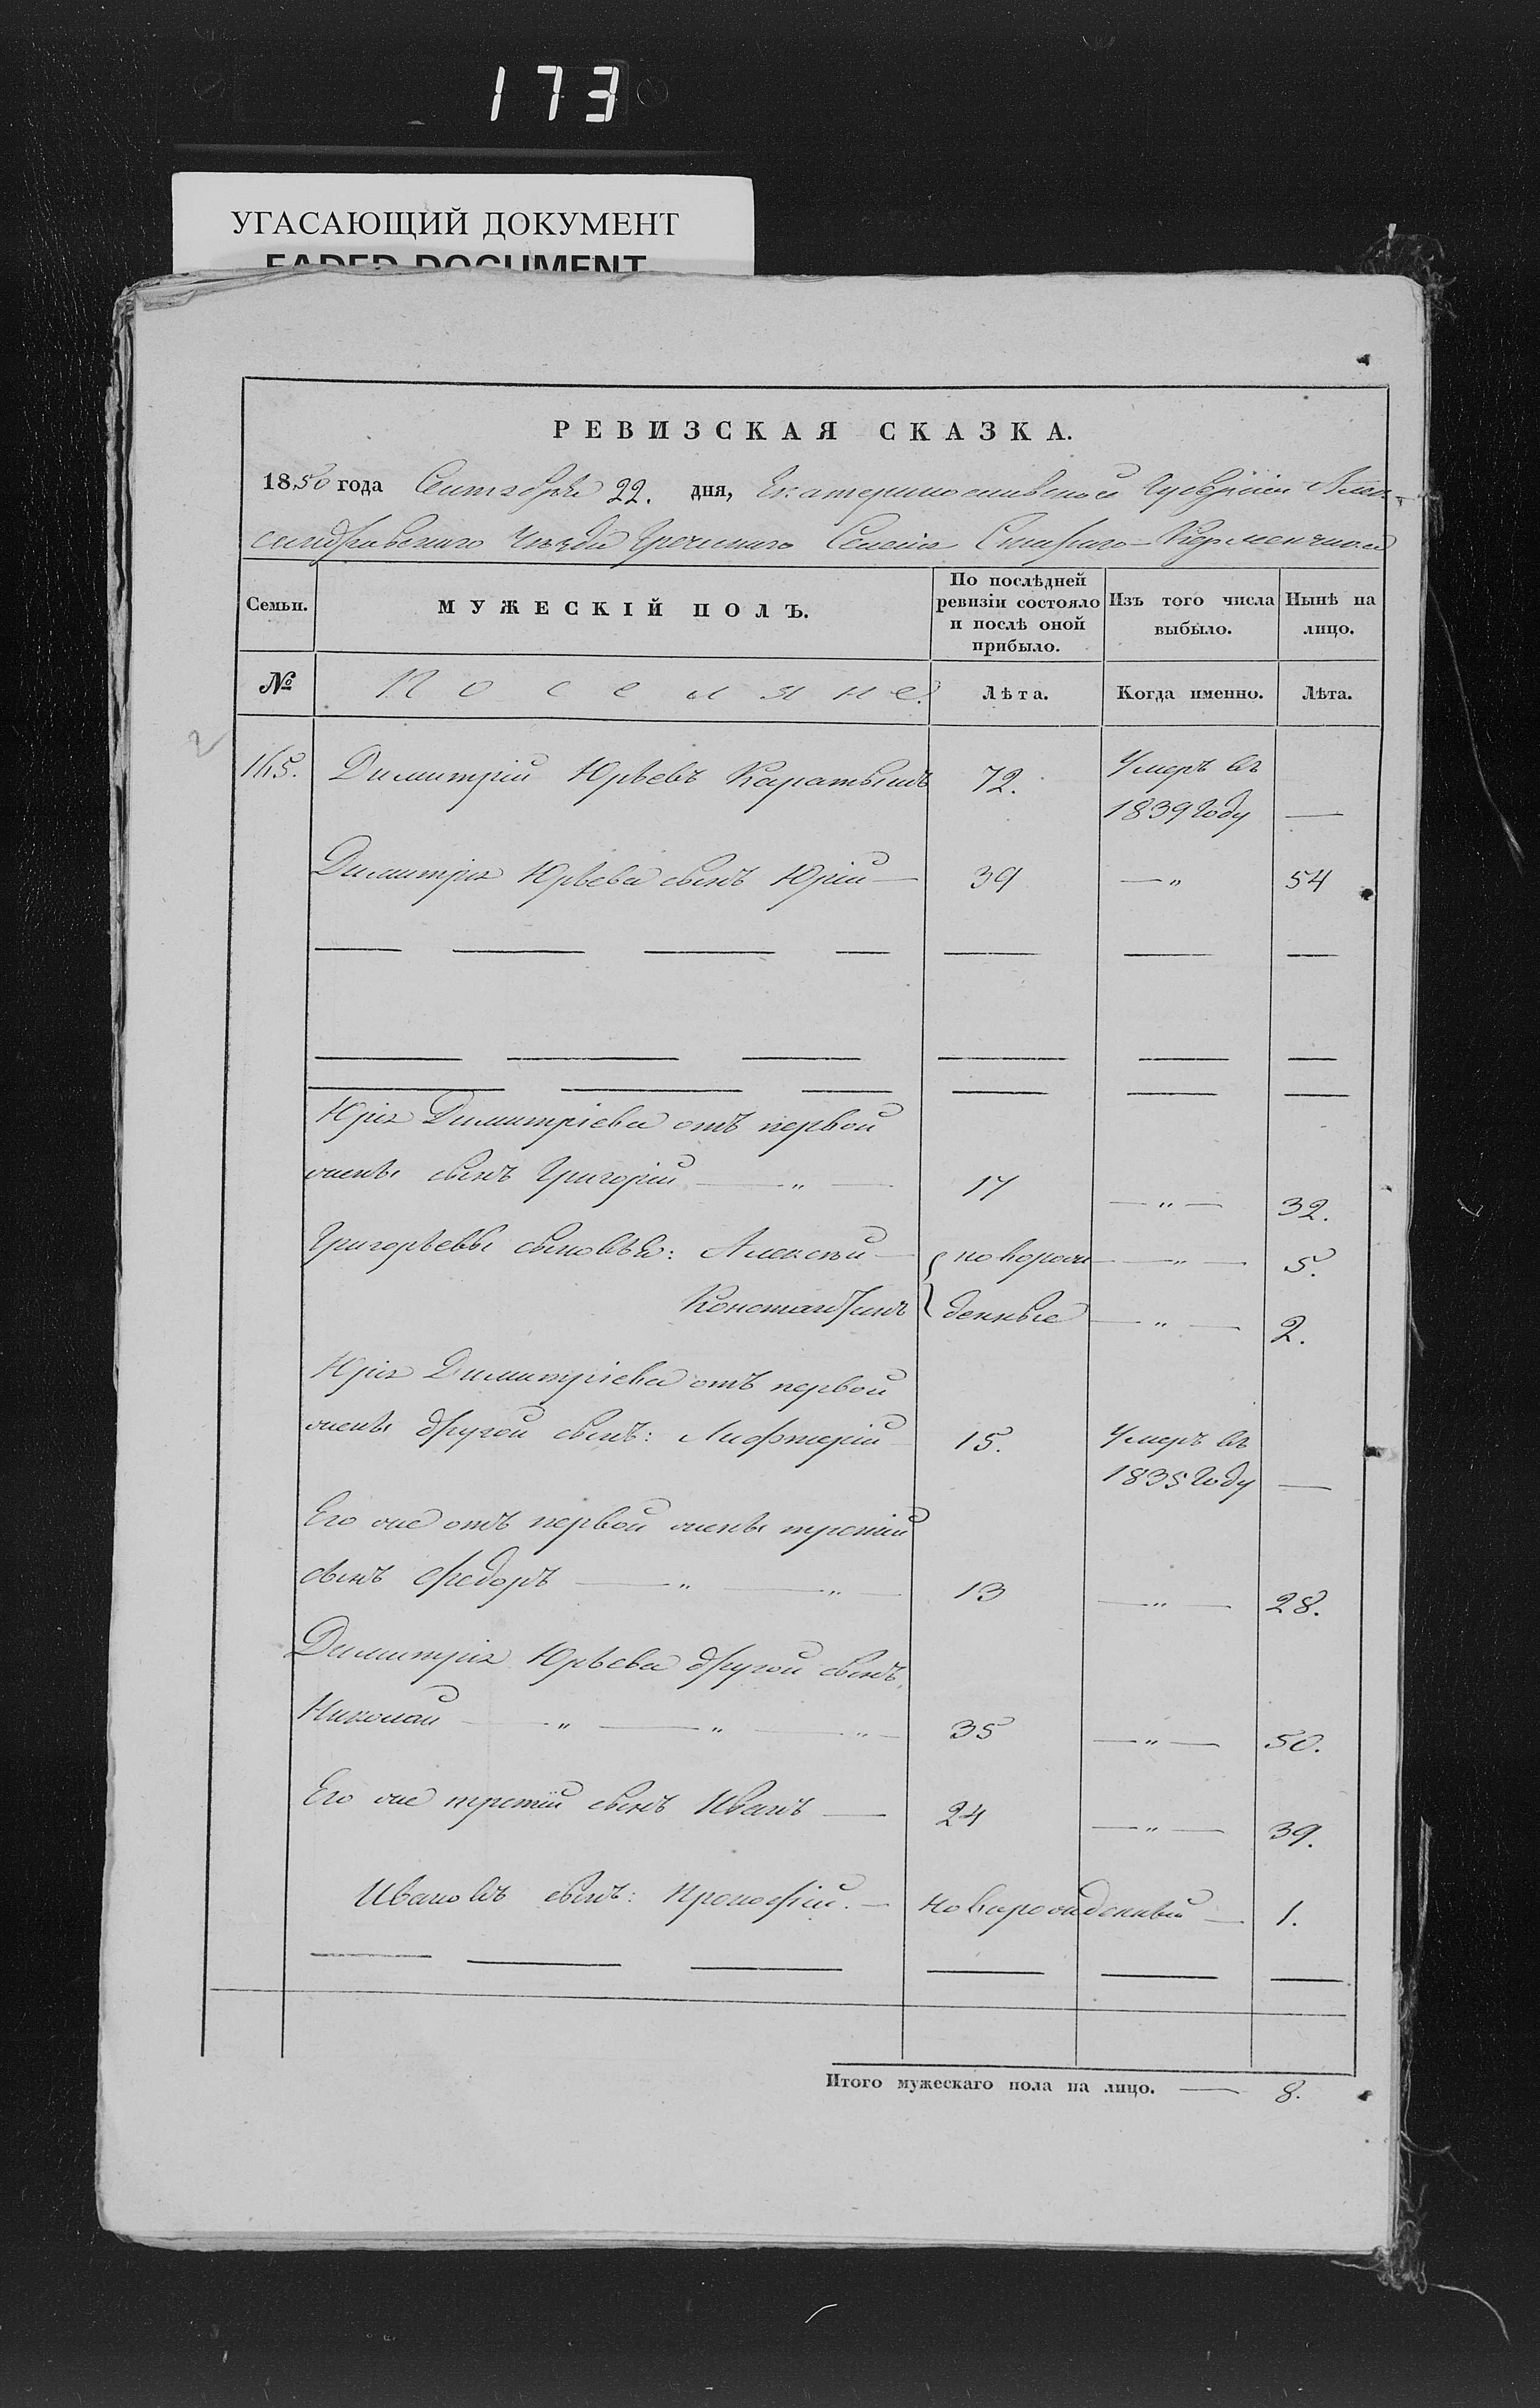 173
УГАСАЮЩИЙ ДОКУМЕНТ
FADED DOCUMENT
РЕВИЗСКАЯ СКАЗКА.
1850 года Сентября 22. дня, Екатеринославской Губерніи Алек-
сандровскаго Уѣзда Греческаго Селенія Стараго-Керменчика
Семьи. МУЖЕСКІЙ ПОЛЪ. По послѣдней ревизіи состояло и послѣ оной прибыло. Изъ того числа выбыло. Нынѣ на лицо.
№ Поселяне. Лѣта. Когда именно. Лѣта.
165. Димитрій Юрьевъ Каратышъ 72. Умеръ въ
1839 Году —
Димитрія Юрьева сынъ Юрій — 39 — „ 54
Юрія Димитріева отъ первой
жены сынъ Григорій — „ — 17 — „ — 32.
Григорьевы сыновья: Алексѣй — { новорож- — „ — 5.
Константинъ { денные — „ — 2.
Юрія Димитріева отъ первой
жены другой сынъ: Лифтерій 15. Умеръ въ
1835 Году —
Его же отъ первой жены третій
сынъ Федоръ — „ — „ — 13 — „ — 28.
Димитрія Юрьева другой сынъ,
Николай — „ — „ — „ — 35 — „ — 50.
Его же третій сынъ Иванъ — 24 — „ — 39.
Ивановъ сынъ: Прокофій. — новорожденный — 1.
Итого мужескаго пола на лицо. — 8.